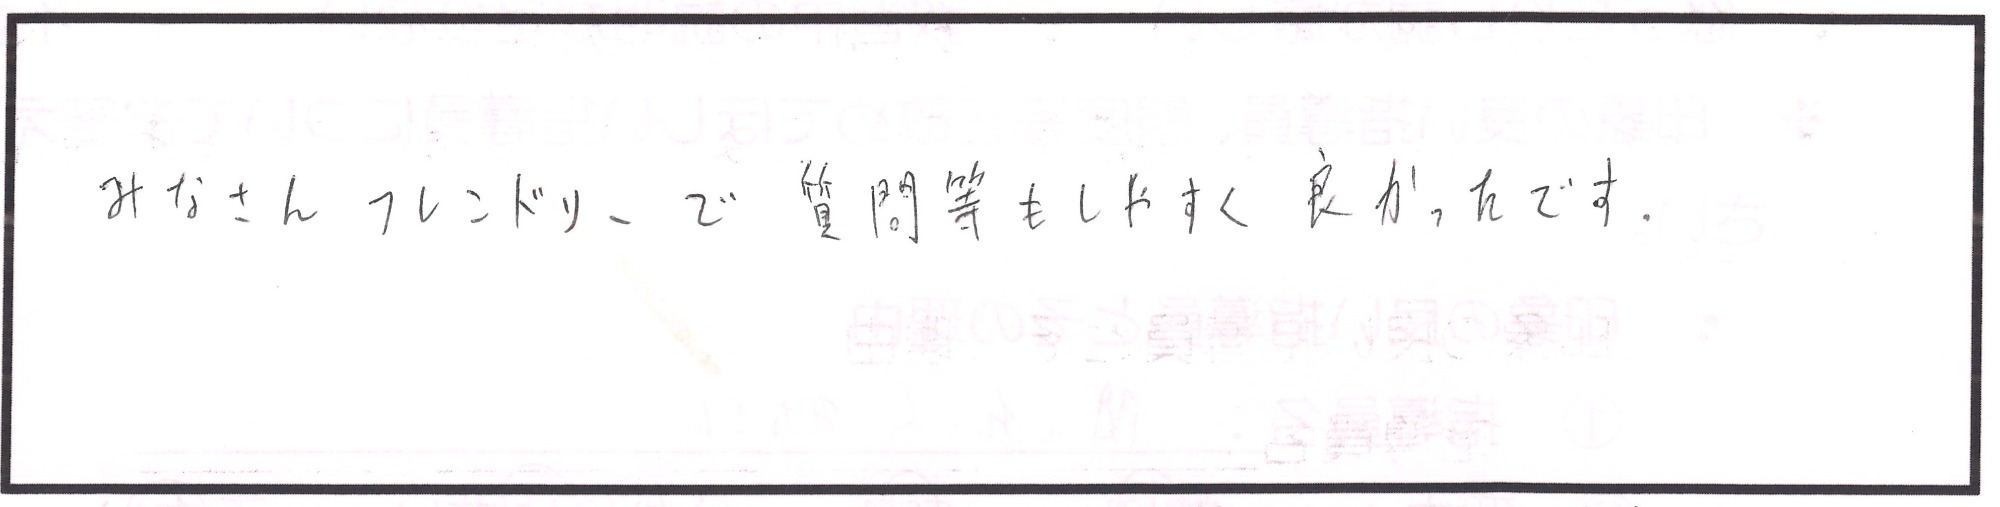 みなさん フレンドリーで 質問等もしやすく 良かったです.